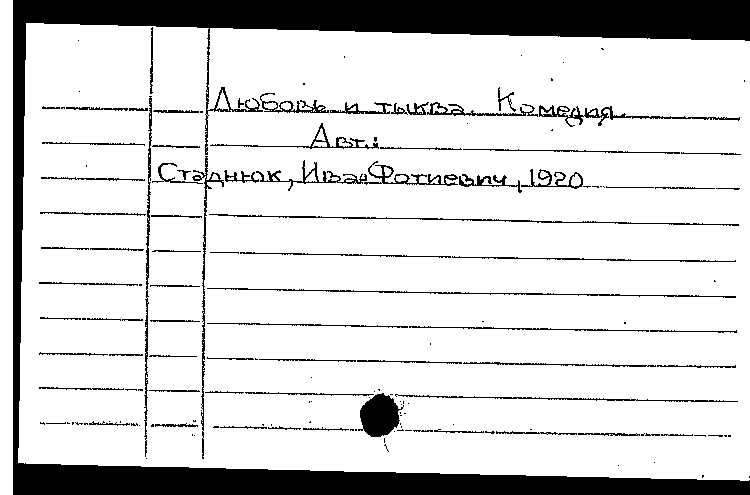 Любовь и тыква. Комедия.
Авт.:
Стаднюк, Иван Фотиевич, 1920